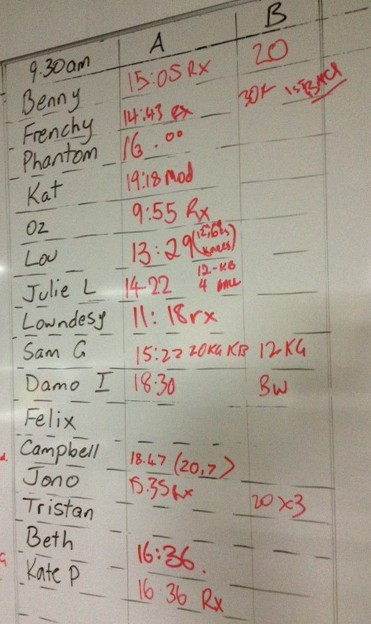 A B
9:30am
Benny 15:05 Rx 20
Frenchy 14:43 Rx
Phantom 16.00
Kat 19:18 Mod
Oz 9:55 Rx
Lou 13:29
Julie L 14-22 12-KB
Lowndesy 11:18rx
Sam G 15:22 20KG KB 12KG
Damo I 18:30 BW
Felix
Campbell 18.47 (20,7)
Jono 15.35Rx
Tristan 20x3
Beth 16:36.
Kate P 16 36 Rx